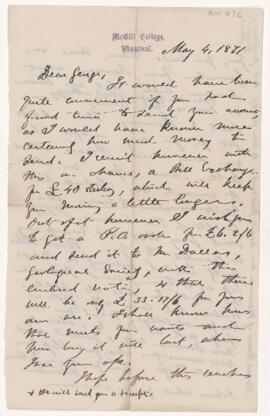 McGill College,
Montreal.
May 4, 1881
Dear George,
It would have been
quite convenient if you had
found time to send your account,
as I would have known more
certainly how much money to
send. I remit however with
this as a chance, a Bill Exchange
for £40 sterling, which will keep
you moving a little longer.
Out of it however I wish you
to get a P.O. order for £6. 2/6
and send it to Mr Dallas,
Geological Society, with the
enclosed note, so that there
will be only £33.17/6 for your
own use. I shall know how
that meets your wants and
how long it will last, when
I see your
I hope before this reaches
& He will send you a receipt.